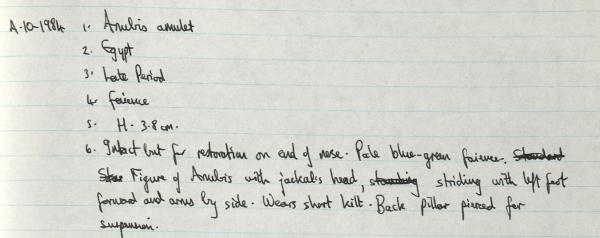 A.10-1984 1. Anubis amulet
2. Egypt
3. Late Period
4. faience
5. H. 3.8 cm.
6. Intact but for restoration on end of nose. Pale blue-green faience. Standard
Stan Figure of Anubis with jackal's head, standing striding with left foot
forward and arms by side. Wears short kilt. Back pillar pierced for
suspension.